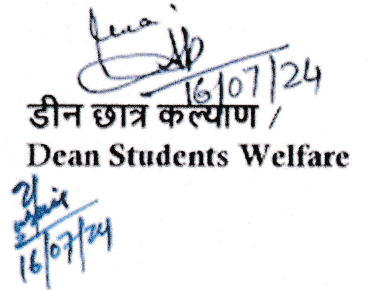 16/07/24
डीन छात्र कल्याण /
Dean Students Welfare
16/07/24